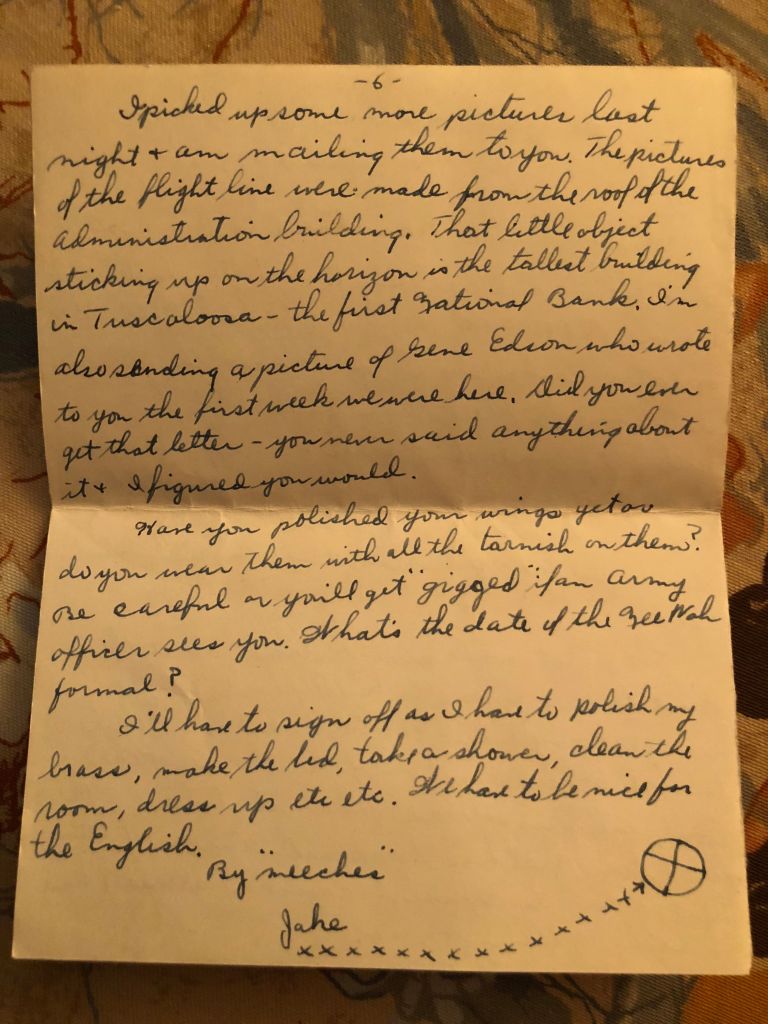 -6-
I picked up some more pictures last
night + am mailing them to you. The pictures
of the flight line were made from the roof of the
administration building. That little object
sticking up on the horizon is the tallest building
in Tuscaloosa - the first National Bank. I'm
also sending a picture of Gene Edson who wrote
to you the first week we were here. Did you ever
get that letter - you never said anything about
it + I figured you would.
Have you polished your wings yet or
do you wear them with all the tarnish on them?
Be careful or you'll get "gigged" if an Army
officer sees you. What's the date of the Zee Wah
formal?
I'll have to sign off as I have to polish my
brass, make the bed, take a shower, clean the
room, dress up etc etc. We have to be nice for
the English.
By "meeches"
Jake
x x x x x x x x x x x x x x